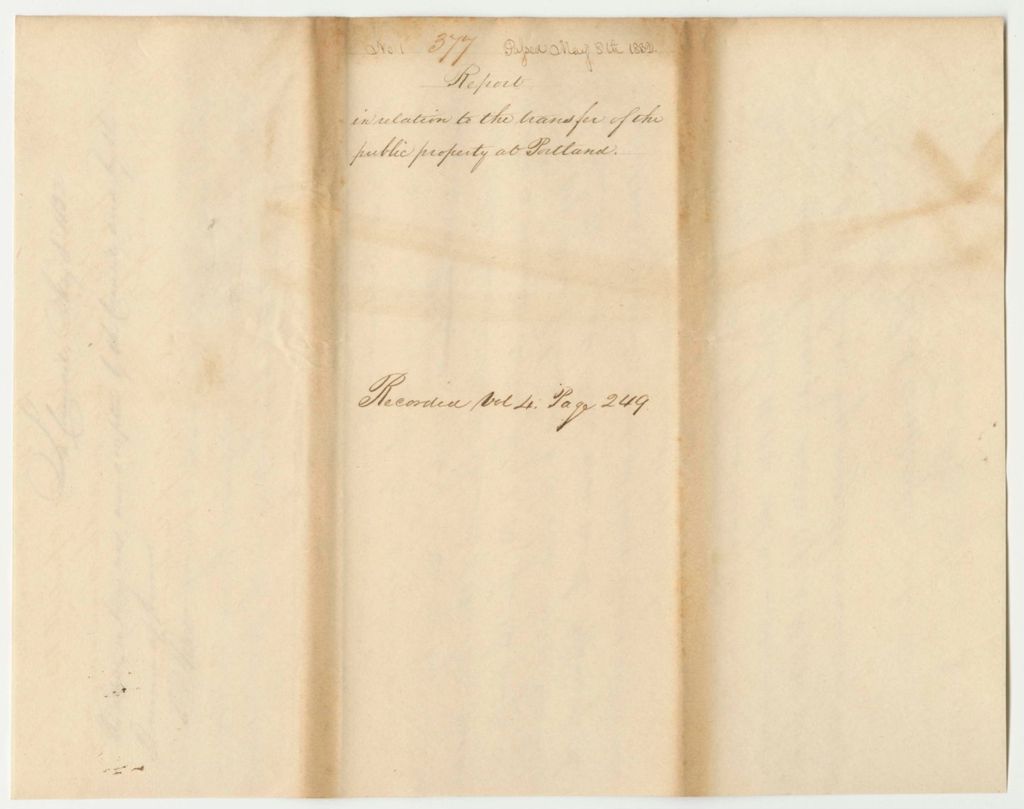 No 1 377 Passed May 8th 1832.
Report
in relation to the transfer of the
public property at Portland.
Recorded Vol 4. Page 249